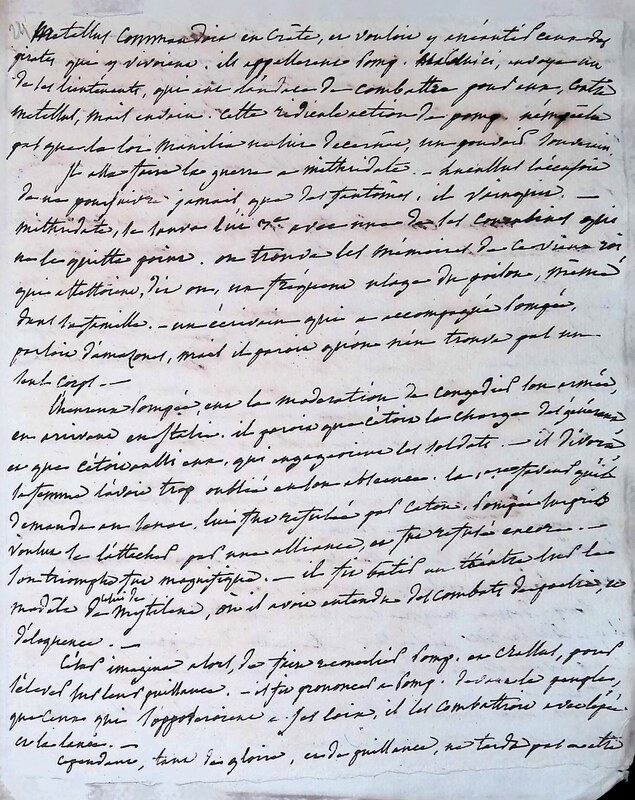 24 Metellus Commandoit en Crète, et vouloit y anéantir ceux des
pirates que y vivoient. ils appellerent Pomp. celui ci, envoya un
de ses lieutenants, qui eut l'audace de combattre pour eux, contre
metellus, mais en vain. Cette ridicule action de pomp. n'empêcha
pas que la loi Manilia ne lui decernât, un pouvoir souverain
Il alla faire la guerre a mithridate. — Lucullus l'accusoit
de ne poursuivre jamais que des fantômes, il vainquit. —
mithridate, se sauva lui 3e. avec une de ses concubines qui
ne le quitta point. on trouva les mémoires de ce vieux roi
qui attestoient, dit on, un fréquent usage du poison, même
dans sa famille. — un écrivain qui a accompagné Pompée,
parloit d'amazones, mais il paroit qu'on n'en trouva pas un
seul corps. —
L'heureux Pompée, eut la modération de congédier son armée,
en arrivant en Italie. il paroit que c'étoit la charge des généraux
et que c'étoit eux, qui engageoient les soldats. — il divorça
sa femme l'avoit trop oublié en son absence. la 1ere faveur qu'il
demanda au Senat, lui fut refusée par Caton. Pompée surpris
voulut se l'attacher par une alliance, et fut refusé encore. —
Son triomphe fut magnifique. — il fit batir un théatre sur le
modèle de celui de Mytilene, où il avoit entendu des combats de poésie, et
d'éloquence. —
César imagina alors, de faire remedier Pomp. et Crassus, pour
s'élever sur leur puissance. — il fit prononcer a Pomp. devant le peuple,
que ceux qui s'opposeroient a ses loix, il les combattroit avec l'épée
et la lance. —
Cependant, tant de gloire, et de puissance, ne tarda pas a etre